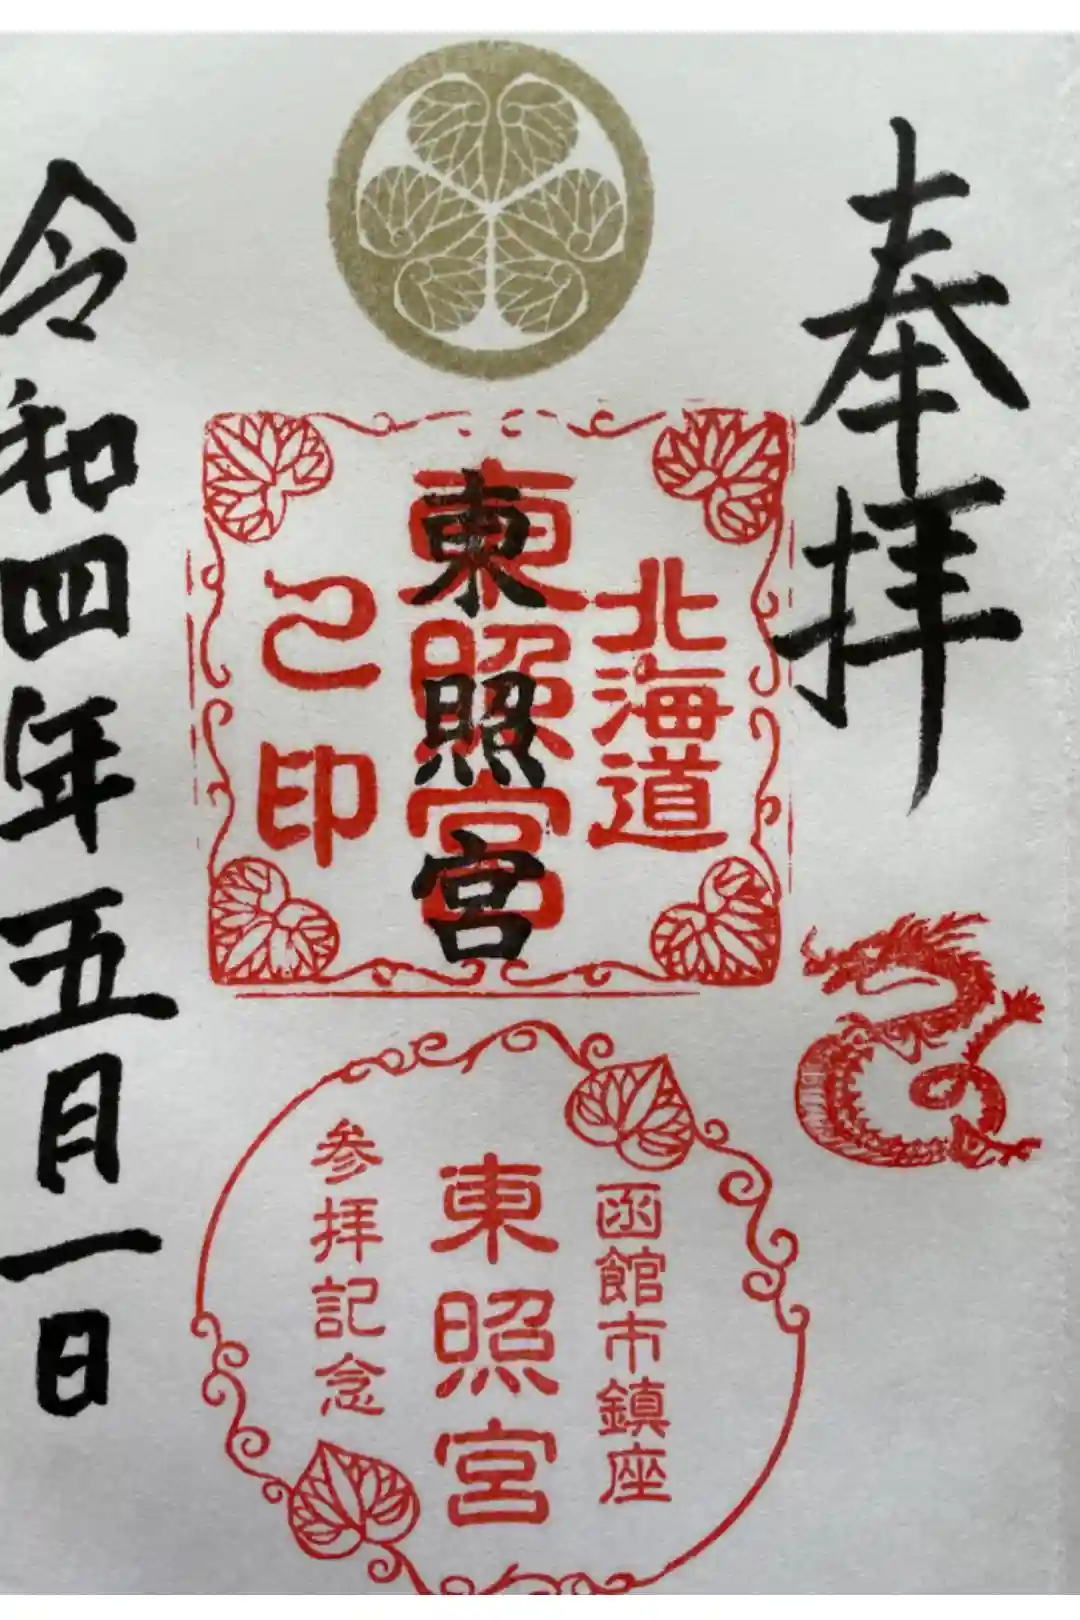 奉拝
北海道
東照宮
印
東照宮
函館市鎮座
東照宮
参拝記念
令和四年五月一日